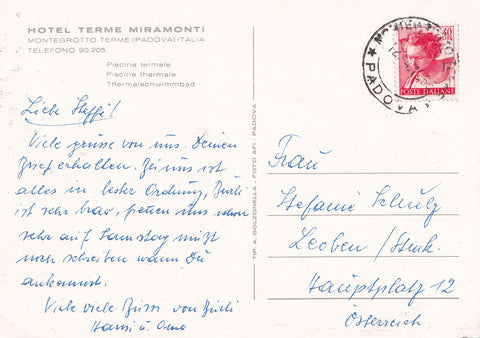 HOTEL TERME MIRAMONTI
MONTEGROTTO TERME (PADOVA) ITALIA
TELEFONO 90.205
Piscina termale
Piscine thermale
Thermalschwimmbad
Liebe Steffi!
Viele grüsse von uns. Deinen
Brief erhalten. Bei uns ist
alles in bester Ordnung, Burli
ist sehr brav, freuen uns schon
sehr auf Samstag mußt
noch schreiben wann Du
ankommst.
Viele viele Bussi von Burli
Hansi u. Oma
TIP. A. BOLZONELLA - FOTO API - PADOVA
40
POSTE ITALIANE
PADOVA
Frau
Stefanie Schulz
Leoben / Stmk.
Hauptplatz 12
Österreich